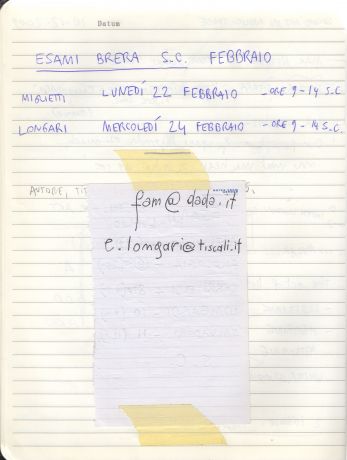 Datum
ESAMI BRERA S.C. FEBBRAIO
MIGLIETTI LUNEDÍ 22 FEBBRAIO - ORE 9-14 S.C
LONGARI MERCOLEDÍ 24 FEBBRAIO - ORE 9-14 S.C.
AUTORE, TIT
fam@dada.it
e.longari@tiscali.it